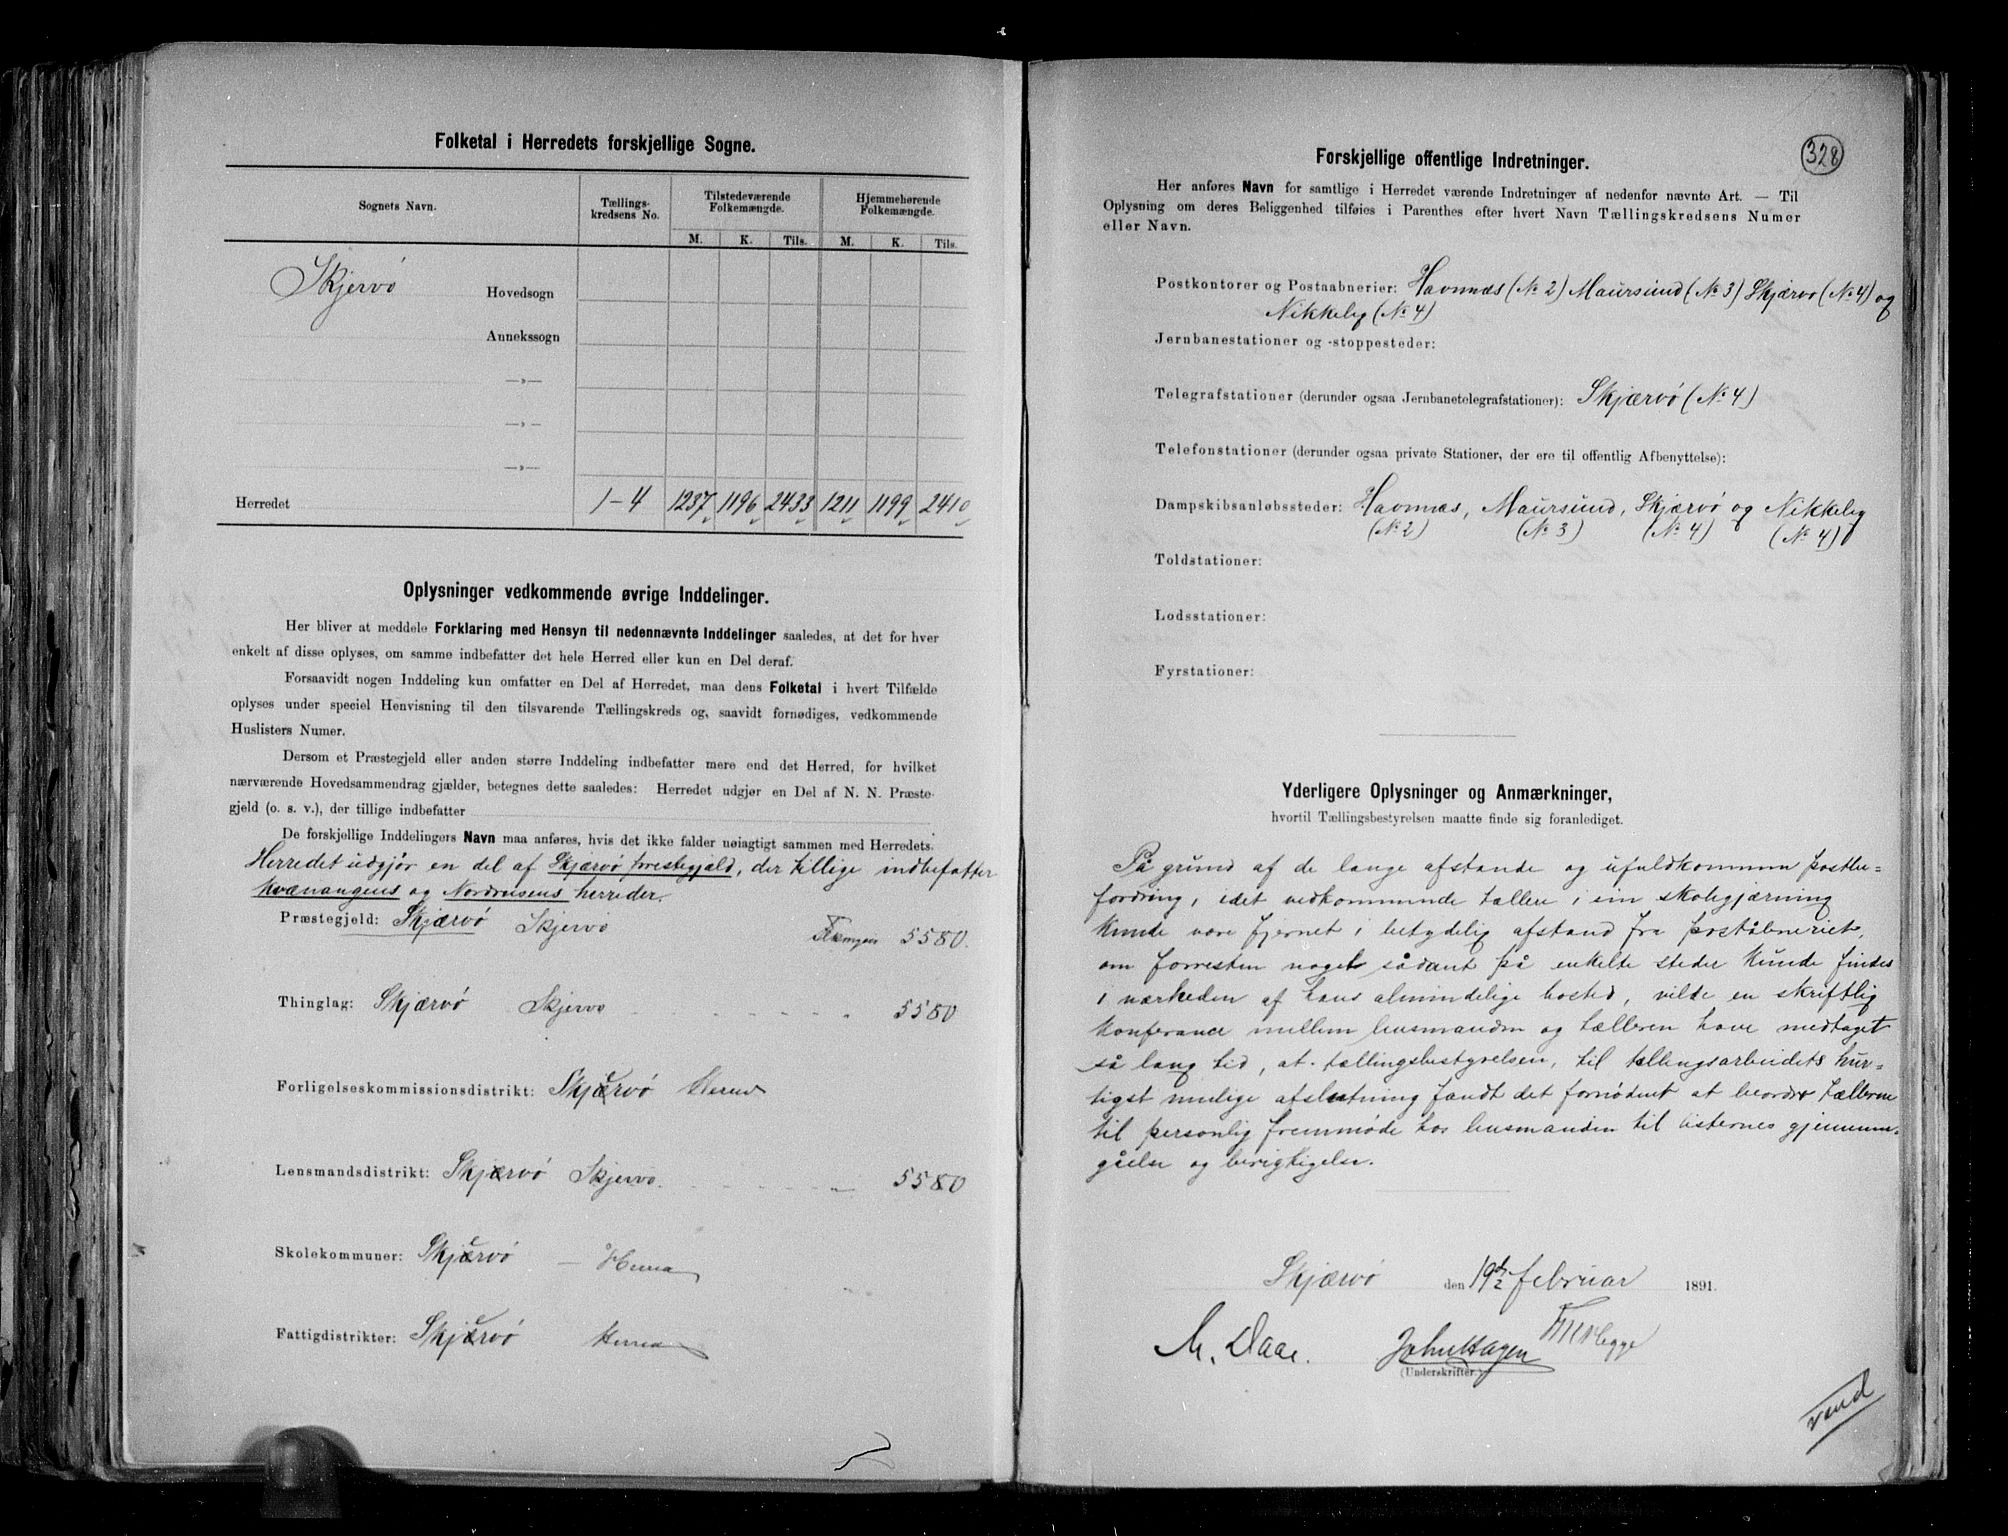 Folketal i Herredets forskjellige Sogne.
Sognets Navn. Tællings-kredsens No. Tilstedeværende Folkemængde. Hjemmehørende Folkemængde.
M. K. Tils. M. K. Tils.
Skjervö Hovedsogn
Annekssogn
—»—
—»—
—»—
Herredet 1-4 1237 1196 2433 1211 1199 2410
Oplysninger vedkommende øvrige Inddelinger.
Her bliver at meddele Forklaring med Hensyn til nedennævnte Inddelinger saaledes, at det for hver
enkelt af disse oplyses, om samme indbefatter det hele Herred eller kun en Del deraf.
Forsaavidt nogen Inddeling kun omfatter en Del af Herredet, maa dens Folketal i hvert Tilfælde
oplyses under speciel Henvisning til den tilsvarende Tællingskreds og, saavidt fornødiges, vedkommende
Huslisters Numer.
Dersom et Præstegjeld eller anden større Inddeling indbefatter mere end det Herred, for hvilket
nærværende Hovedsammendrag gjælder, betegnes dette saaledes: Herredet udgjør en Del af N. N. Præste-
gjeld (o. s. v.), der tillige indbefatter
De forskjellige Inddelingers Navn maa anføres, hvis det ikke falder nøiagtigt sammen med Herredets.
Herredet udgjör en del af Skjærvö prestegjæld, der tillige indbefatter
Kvænangens og Nordreisens herreder.
Præstegjeld: Skjærvö Skjervö 5580.
Thinglag: Skjærvö Skjervö 5580
Forligelseskommissionsdistrikt: Skjærvö Herred
Lensmandsdistrikt: Skjærvö Skjervö. 5580
Skolekommuner: Skjærvö — Herred
Fattigdistrikter: Skjærvö Herred
328
Forskjellige offentlige Indretninger.
Her anføres Navn for samtlige i Herredet værende Indretninger af nedenfor nævnte Art. — Til
Oplysning om deres Beliggenhed tilføies i Parenthes efter hvert Navn Tællingskredsens Numer
eller Navn.
Postkontorer og Postaabnerier: Havnnæs (No 2) Maursund (No 3) Skjærvö (No 4) og
Nikkeby (No 4)
Jernbanestationer og -stoppesteder:
Telegrafstationer (derunder ogsaa Jernbanetelegrafstationer): Skjærvö (No 4)
Telefonstationer (derunder ogsaa private Stationer, der ere til offentlig Afbenyttelse):
Dampskibsanløbssteder: Havnnæs, Maursund, Skjærvö og Nikkeby
(No 2) (No 3) (No 4) (No 4)
Toldstationer:
Lodsstationer:
Fyrstationer:
Yderligere Oplysninger og Anmærkninger,
hvortil Tællingsbestyrelsen maatte finde sig foranlediget.
På grund af de lange afstande og ufuldkommen postbe-
fordring, idet vedkommende tællere i sin skolegjærning
kunde være fjernet i betydelig afstand fra poståbneriet,
om forresten noget sådant på enkelte steder kunde findes
i nærheden af hans almindelige bosted, vilde en skriftlig
konferance mellem husmanden og tælleren have medtaget
så lang tid, at tællingsbestyrelsen, til tællingsarbeidets hur-
tigst mulige afslutning fandt det fornödent at beordre tællerne
til personlig fremmöde hos husmanden til listernes gjennem-
gåelse og berigtigelse.
Skjærvö den 19de februar 1891.
M. Daae. John Hagen
(Underskrifter.)
vend